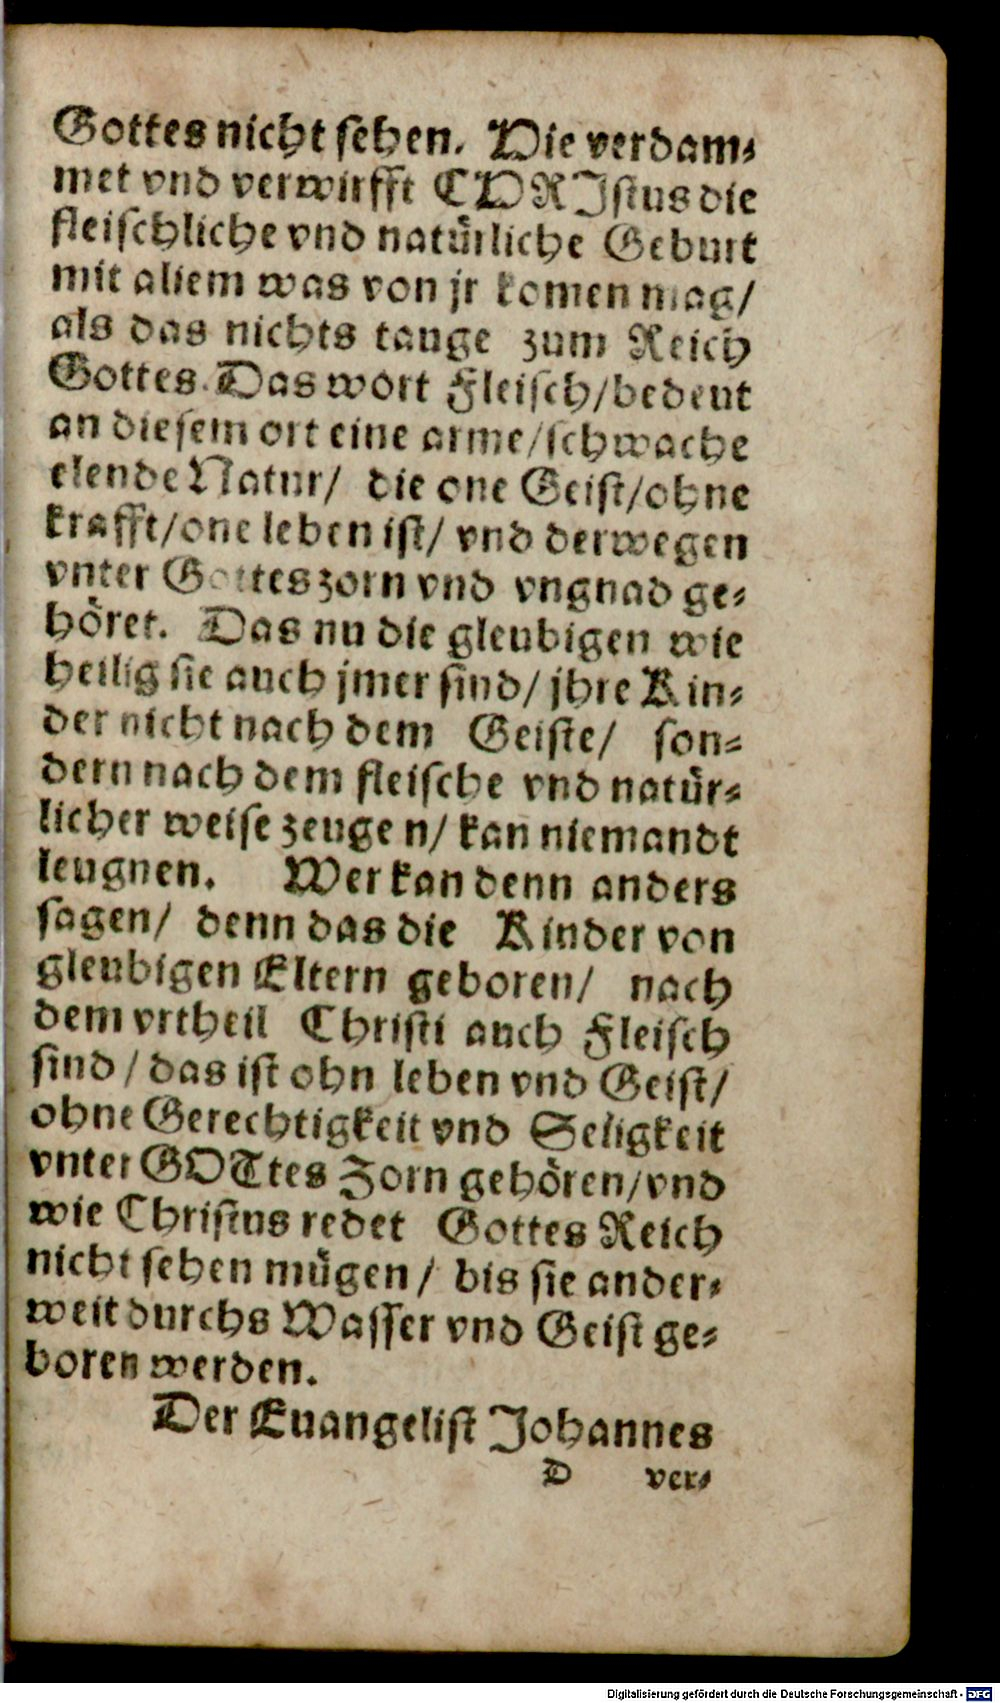 Gottes nicht sehen. Hie verdam⸗
met vnd verwirfft CHRJstus die
fleischliche vnd natürliche Geburt
mit allem was von jr komen mag/
als das nichts tauge zum Reich
Gottes. Das wort Fleisch/bedeut
an diesem ort eine arme/schwache
elende Natur/ die one Geist/ohne
krafft/one leben ist/ vnd derwegen
vnter Gottes zorn vnd vngnad ge⸗
höret. Das nu die gleubigen wie
heilig sie auch jmer sind/ jhre Kin⸗
der nicht nach dem Geiste/ son⸗
dern nach dem fleische vnd natür⸗
licher weise zeuge n/ kan niemandt
leugnen. Wer kan denn anders
sagen/ denn das die Kinder von
gleubigen Eltern geboren/ nach
dem vrtheil Christi auch Fleisch
sind / das ist ohn leben vnd Geist/
ohne Gerechtigkeit vnd Seligkeit
vnter GOTtes Zorn gehören/vnd
wie Christus redet Gottes Reich
nicht sehen mügen/ bis sie ander⸗
weit durchs Wasser vnd Geist ge⸗
boren werden.
Der Euangelist Johannes
D ver⸗
Digitalisierung gefördert durch die Deutsche Forschungsgemeinschaft - DFG